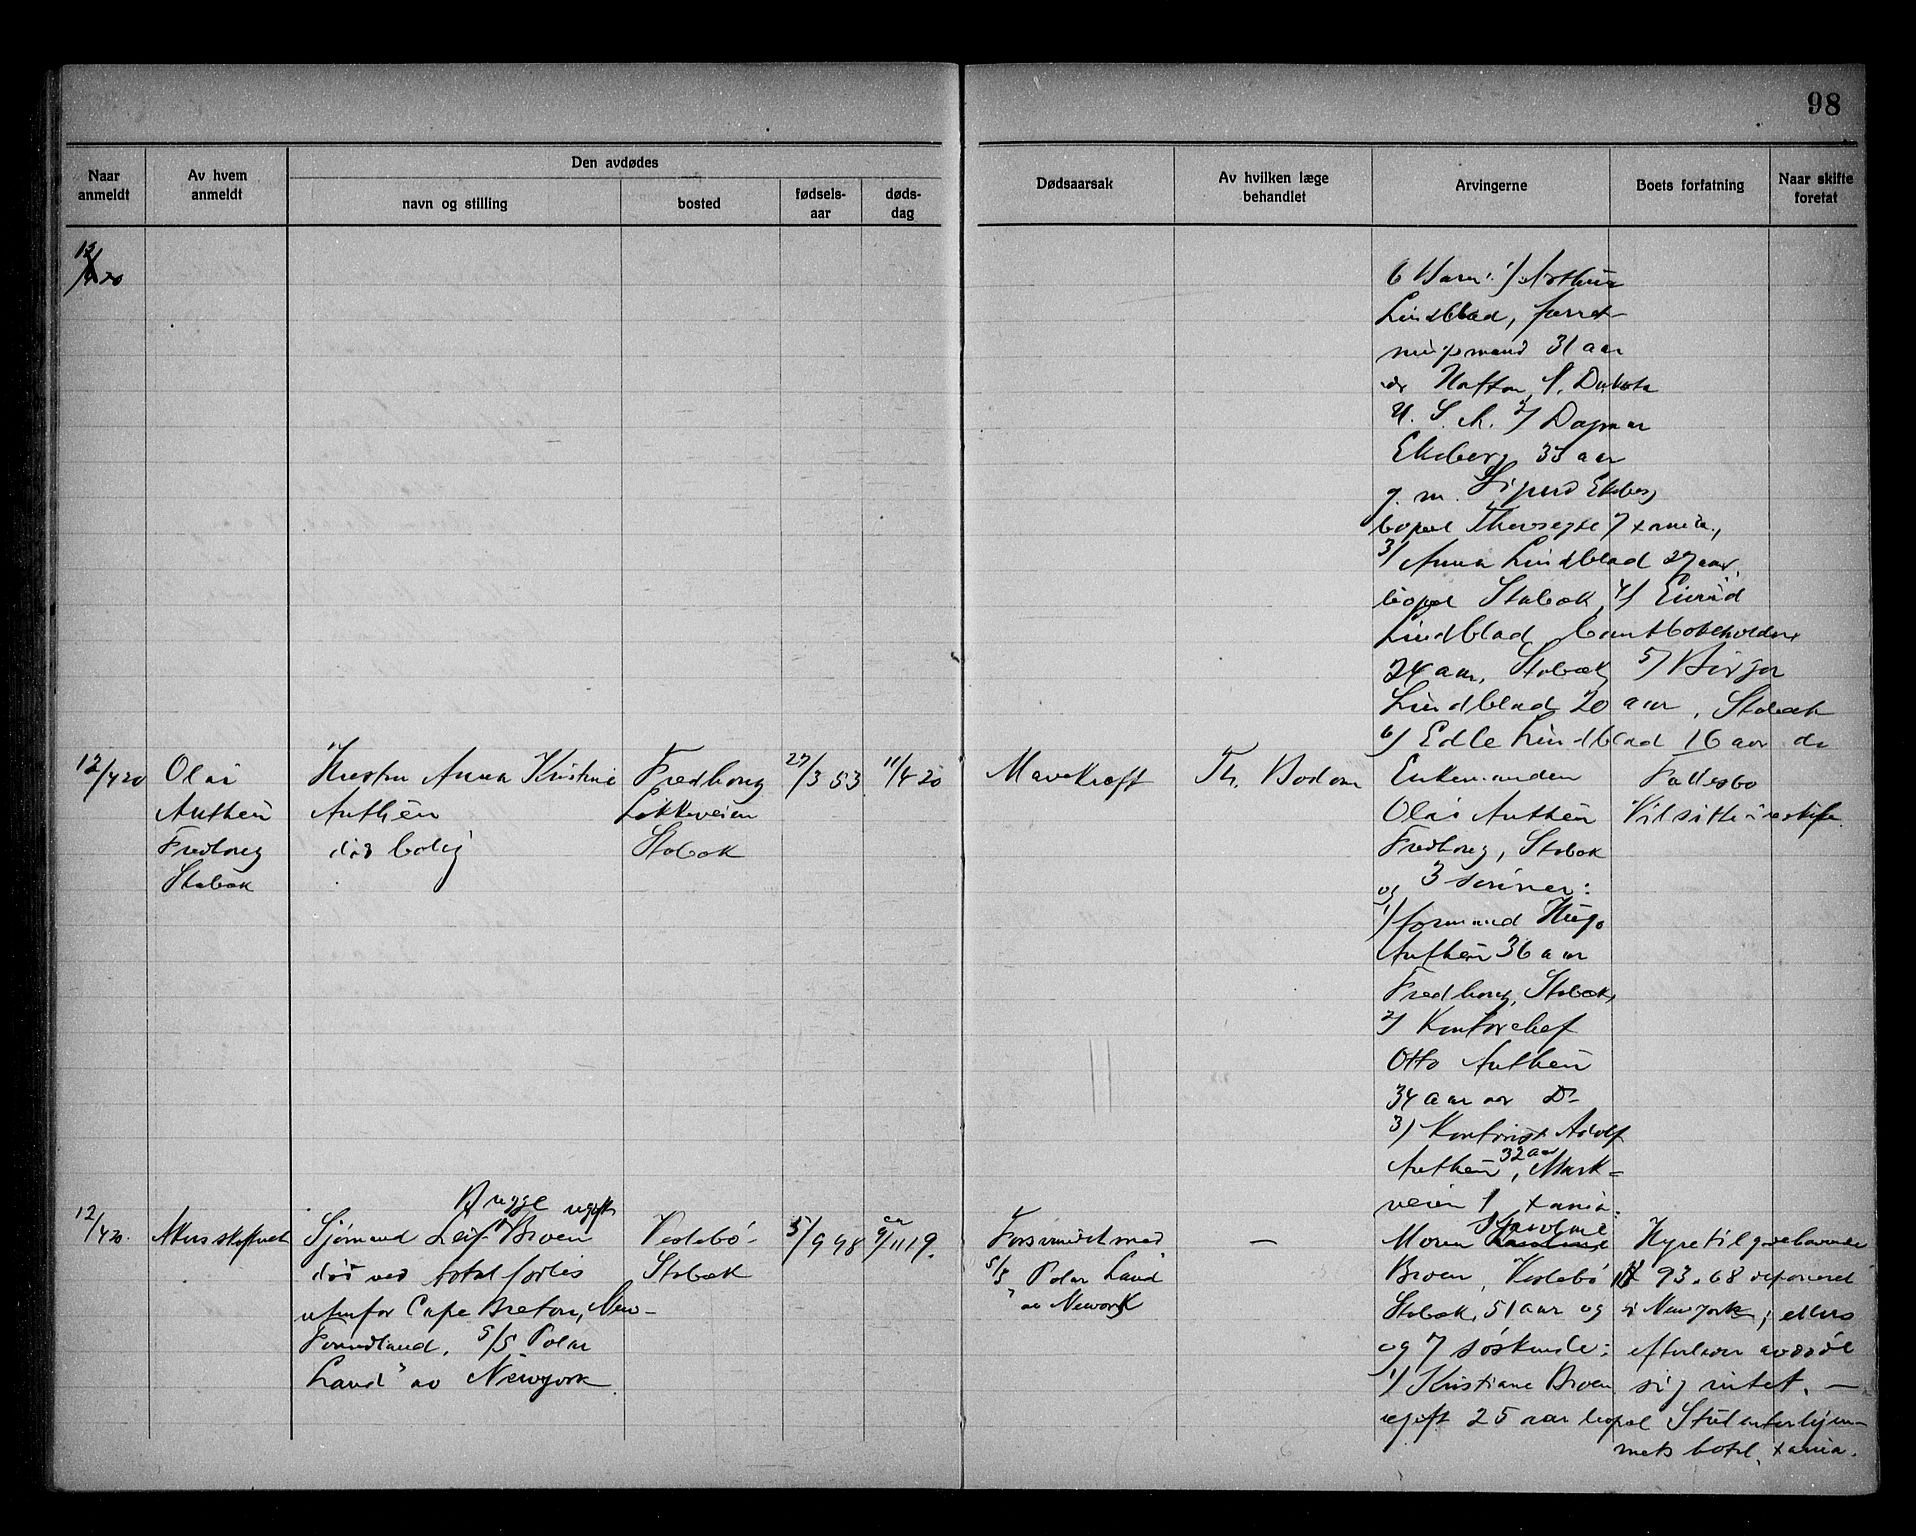 98
Naar anmeldt
Av hvem anmeldt
Den avdødes
navn og stilling
bosted
fødselsaar
dødsdag
Dødsaarsak
Av hvilken læge behandlet
Arvingerne
Boets forfatning
Naar skifte foretat
12/4 20
6 Barn: 1) Arthur
Lindblad, forret-
ningsmand 31 aar
Dakota
U. S. A. 2) Dagmar
Ekeberg 33 aar
g. m. Sigurd Ekeberg
bopæl 7 xania,
3) Anna Lindblad 27 aar,
bopæl Stabæk, 4) Eivind
Lindblad,
24 aar, Stabæk, 5) Birger
Lindblad 20 aar, Stabæk
6) Edle Lindblad 16 aar do
12/4 20
Olai
Anthén
Fredborg
Stabæk
Hustru Anna Kristine
Anthén
død bolig
Fredborg
Løkkeveien
Stabæk
27/3 53
11/4 20
Mavekræft
Th. Bodom
Enkemanden
Olai Anthén
Fredborg, Stabæk
og 3 sønner:
1) formand Hugo
Anthén 36 aar
Fredborg, Stabæk,
2) Kontorchef
Otto Anthén
34 aar D-
3) Kontorist Adolf
Anthén 32 aar, Mark-
veien 1 xania.
Fællesbo
Vil sitte i uskifte.
12/4 20.
Akers skifteret
Brygge ugift
Sjømand Leif Broen
død ved forlis
utenfor Cape Breton, New-
Foundland, S/S Polar
Land" av Newyork
Veslebø
Stabæk
5/9 98
ca 9/11 19.
Forsvundet med
S/S
"Polar Land
av Newyork
—
Moren
Broen, Veslebø
Stabæk, 51 aar og
og 7 søskende:
1) Kristiane Broen
ugift 25 aar bopæl Studenterhjem-
mets hotel, xania.
Hyretilgodehavende
93.68 deponeret
i Newyork, ellers
efterlader avdøde
sig intet. —